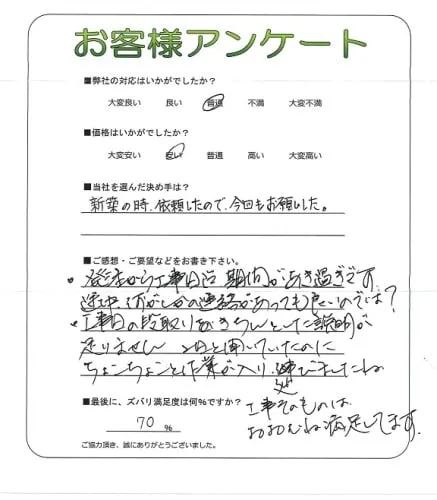 お客様アンケート
■弊社の対応はいかがでしたか？
大変良い 良い 普通 不満 大変不満
■価格はいかがでしたか？
大変安い 安い 普通 高い 大変高い
■当社を選んだ決め手は？
新築の時、依頼したので、今回もお願いした。
■ご感想・ご要望などをお書き下さい。
・発注から工事日迄 期間があき過ぎです
途中、何がしかの連絡があっても良いのでは？
・工事日の段取りをきちんとした説明が
足りません 2日と聞いていたのに
ちょこちょことした作業が入り、延びましたね
■最後に、ズバリ満足度は何％ですか？
70 %
工事そのものは
おおむね満足してます。
ご協力頂き、誠にありがとうございました。